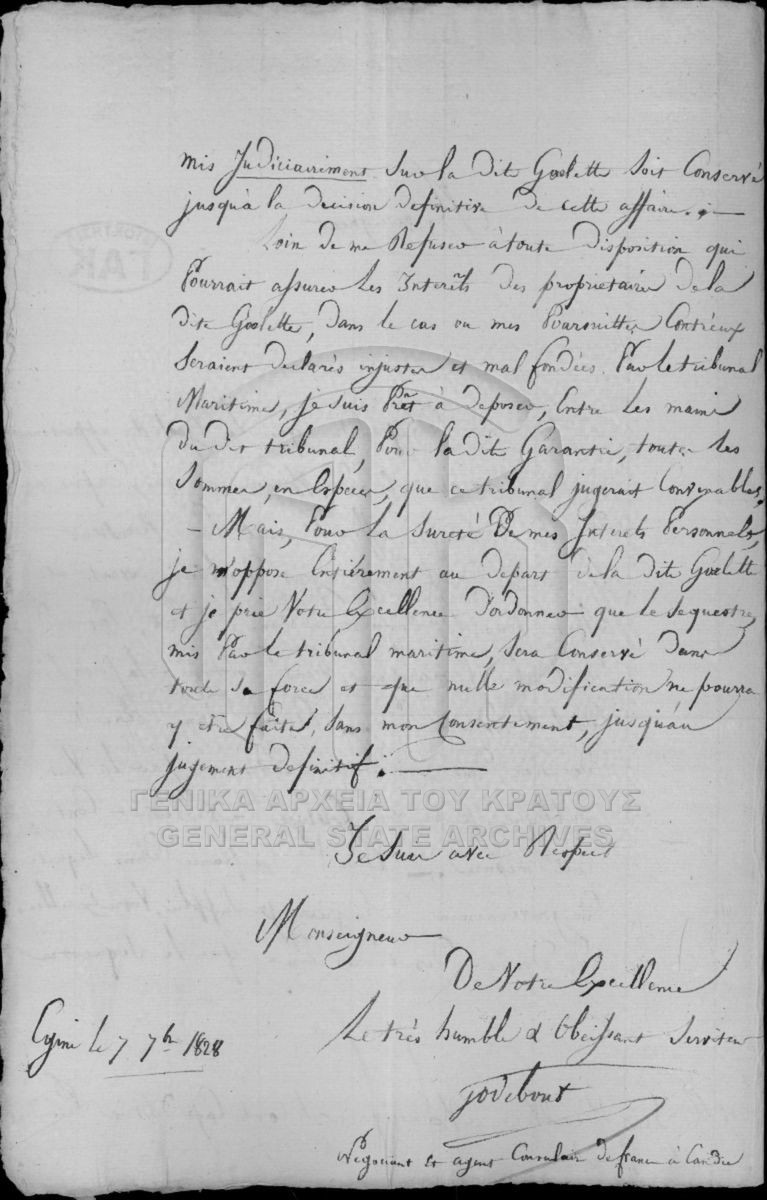 mis Judiciairiment sur la dite Goelette soit Conservé
jusqu'à la decision definitive de cette affaire. —
Loin de me Refuser à toute disposition qui
Pourrait assurer les Interêts des proprietaires de la
dite Goelette, dans le cas ou mes Poursuittes Contr'eux
seraient declarés injustes et mal fondées. Par le tribunal
Maritime, je suis Prêt à deposer, Entre les mains
du dit tribunal, Pour la dite Garantie, toutes les
Sommes, en Espèces, que ce tribunal jugerait Convenables.
— Mais, Pour la Sureté De mes Interets Personnels,
je m'oppose Entiérement au depart de la dite Goelette
et je prie Votre Excellence d'ordonner que le sequestre,
mis Par le tribunal maritime, sera Conservé dans
toute sa force et que nulle modification ne pourra
y etre faite, sans mon Consentement, jusqu'au
jugement definitif. —
ΓΕΝΙΚΑ ΑΡΧΕΙΑ ΤΟΥ ΚΡΑΤΟΥΣ
GENERAL STATE ARCHIVES
Je suis avec Respect
Monseigneur
De Votre Excellence
Le très humble & Obeissant Serviteur
Egine le 7 7bre 1828
Godebout
Négociant et agent Consulaire de france à Candie